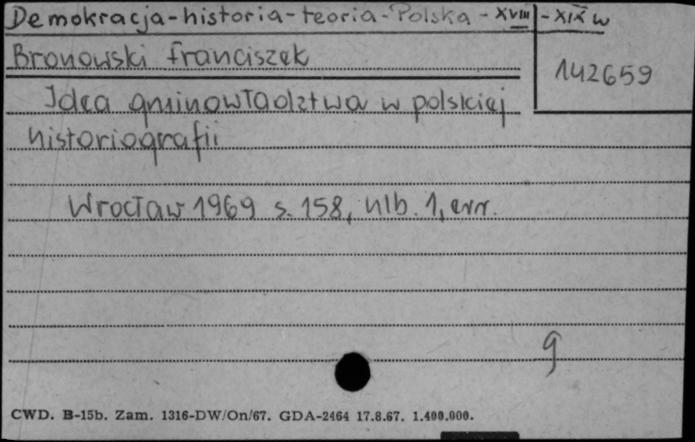 Demokracja-historia-teoria-Polska-XVIII-XIX w
Bronowski Franciszek
142659
Idea gminowładztwa w polskiej
historiografii
Wrocław 1969 s. 158, nlb. 1, err.
g
CWD. B-15b. Zam. 1316-DW/On/67. GDA-2464 17.8.67. 1.400.000.